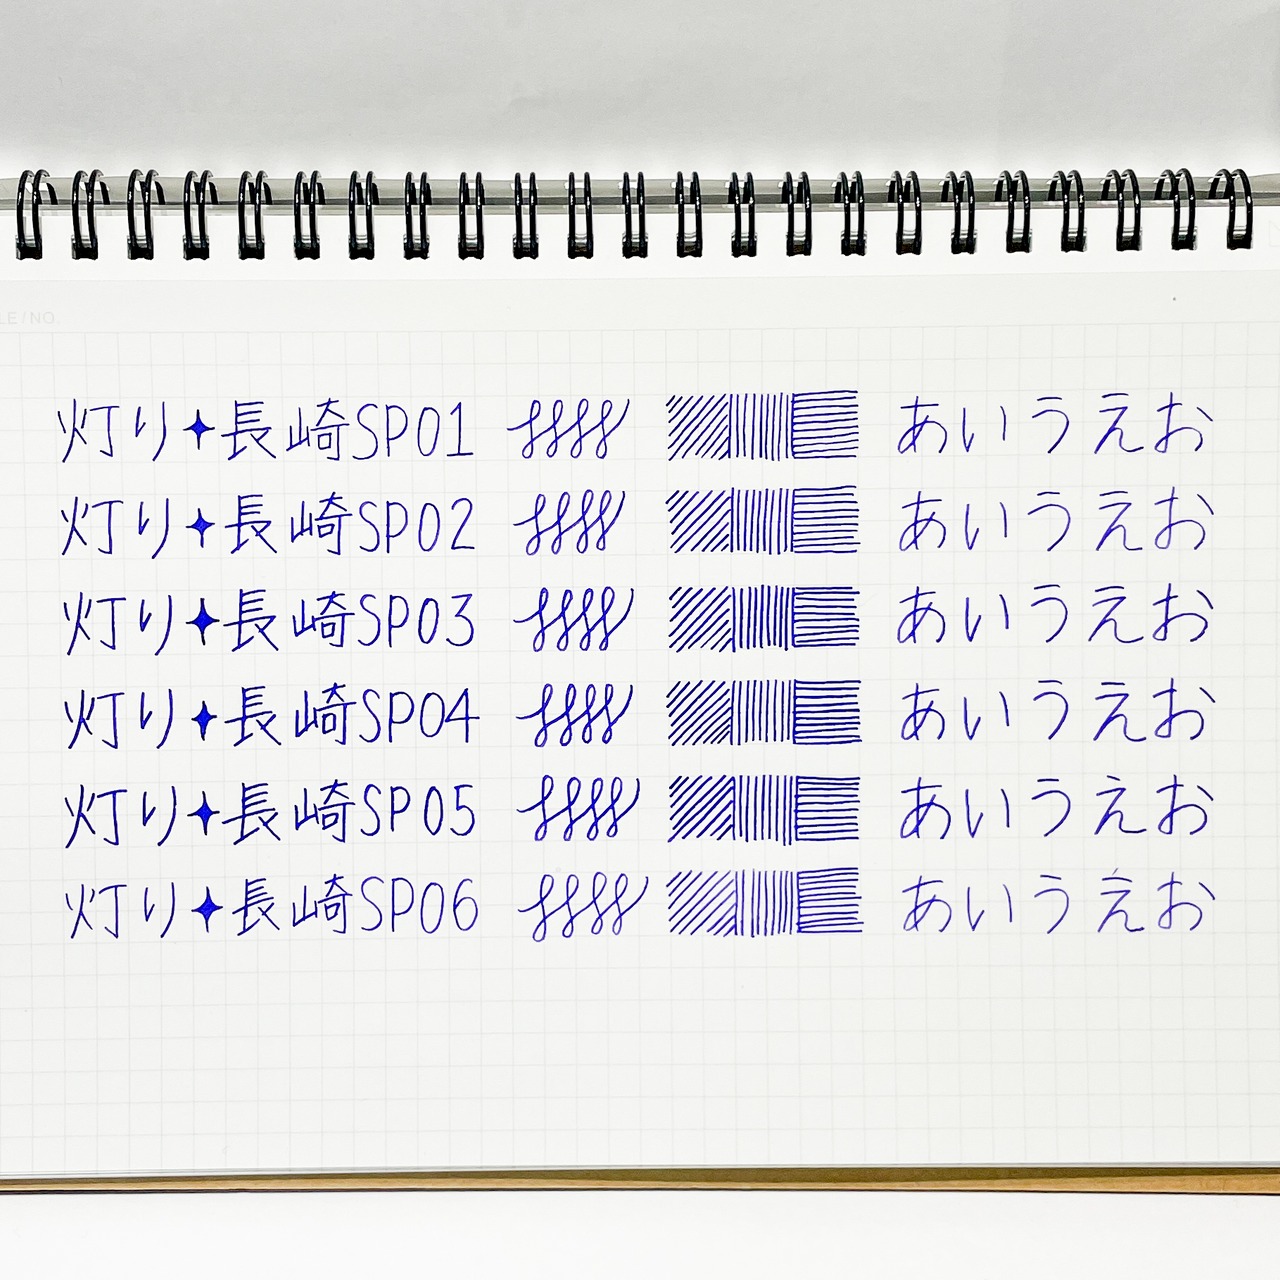 LE/NO.
灯り✦長崎SP01 あいうえお
灯り✦長崎SP02 あいうえお
灯り✦長崎SP03 あいうえお
灯り✦長崎SP04 あいうえお
灯り✦長崎SP05 あいうえお
灯り✦長崎SP06 あいうえお